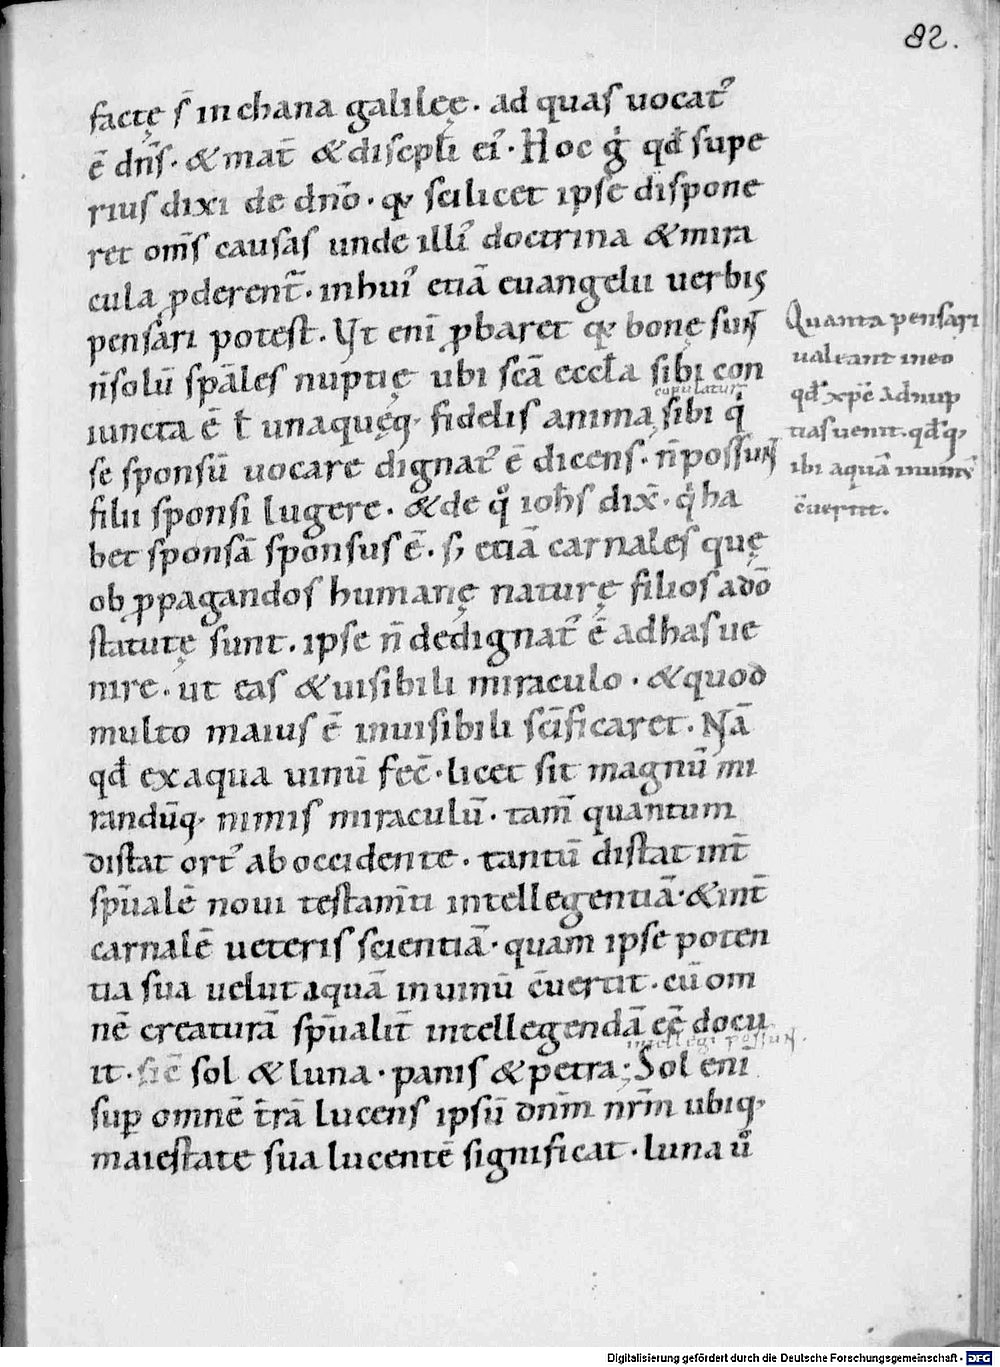 82.
factę s̄ in chana galilęę. ad quas uocatꝰ
ē dn̄s. & mat̄ & discipl̄i eiꝰ. Hoc g̊ qđ supe
rius dixi de dn̄o. qꝫ scilicet ipse dispone
ret om̄s causas unde illiꝰ doctrina & mira
cula ꝓderent᷑. in huiꝰ etiā euangelii uerbis
pensari potest. Vt eni ꝓbaret qꝫ bonę sunt
n̄ solū spāles nuptię ubi sc̄a eccl̄a sibi con
copulatur
iuncta ē ł unaquęq; fidelis anima, sibi q̇
se sponsū uocare dignatꝰ ē dicens. n̄ possunt
filii sponsi lugere. & de q̊ ioh̄s dix̄. q̇ ha
bet sponsā sponsus ē. sꝫ etiā carnales quę
ob ꝓpagandos humanę naturę filios a dō
statutę sunt. ipse n̄ dedignatꝰ ē ad has ue
nire. ut eas & uisibili miraculo. & quod
multo maius ē inuisibili sc̄ificaret. Nā
qđ ex aqua uinū fec̄. licet sit magnū mi
randūq; nimis miraculū. tam̄ quantum
distat ortꝰ ab occidente. tantū distat int̄
sp̄ualē noui testam̄ti intellegentiā. & int̄
carnalē ueteris scientiā. quam ipse poten
tia sua uelut aquā in uinū c̄uertit. cū om
nē creaturā sp̄ualit̄ intellegendā ee̅ docu
intellegi possunt.
it. sic̄ sol & luna. panis & petra; Sol eni
sup̱ omnē t̄rā lucens ipsū dnm̄ nr̄m ubiq;
maiestate sua lucentē significat. luna ů
Quanta pensari
ualeant in eo
qđ xp̄c ad nup
tias uenit. qđq;
ibi aquā in uinū
c̄uertit.
Digitalisierung gefördert durch die Deutsche Forschungsgemeinschaft - DFG